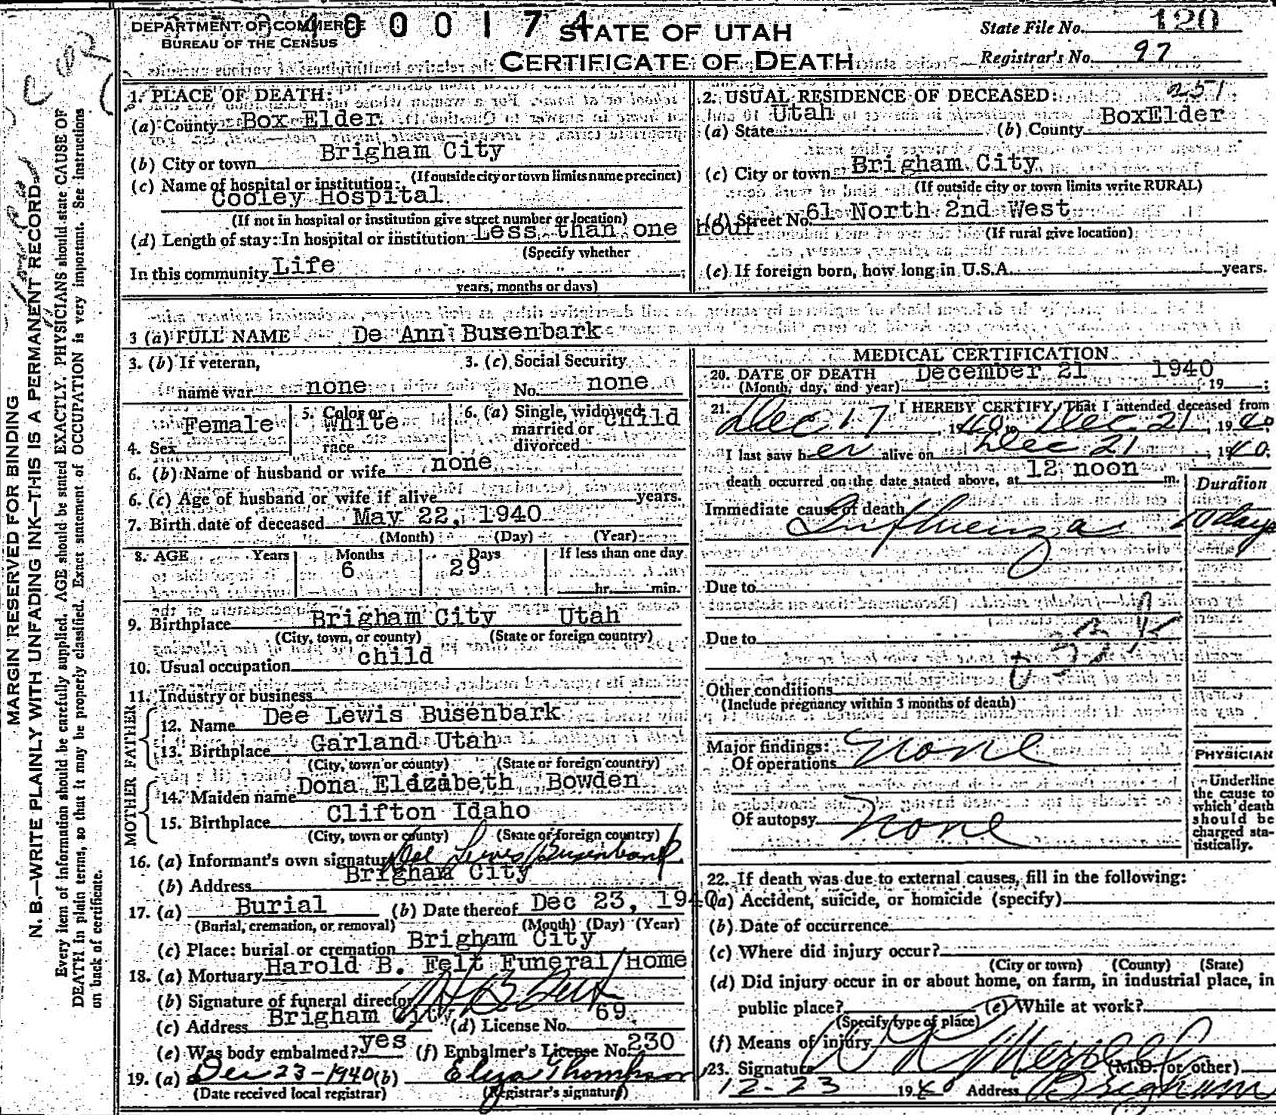 DEPARTMENT OF COMMERCE
BUREAU OF THE CENSUS
400 0174
STATE OF UTAH
CERTIFICATE OF DEATH
State File No. 120
Registrar's No. 97
MARGIN RESERVED FOR BINDING
N. B.—WRITE PLAINLY WITH UNFADING INK—THIS IS A PERMANENT RECORD.
Every item of information should be carefully supplied. AGE should be stated EXACTLY. PHYSICIANS should state CAUSE OF
DEATH in plain terms, so that it may be properly classified. Exact statement of OCCUPATION is very important. See instructions
on back of certificate.
1. PLACE OF DEATH:
(a) County Box Elder
(b) City or town Brigham City
(If outside city or town limits name precinct)
(c) Name of hospital or institution:
Cooley Hospital
(If not in hospital or institution give street number or location)
(d) Length of stay: In hospital or institution Less than one hour
(Specify whether
In this community Life
years, months or days)
2. USUAL RESIDENCE OF DECEASED: 251
(a) State Utah (b) County BoxElder
(c) City or town Brigham City
(If outside city or town limits write RURAL)
(d) Street No. 61 North 2nd West
(If rural give location)
(e) If foreign born, how long in U.S.A. years.
3 (a) FULL NAME De Ann Busenbark
3. (b) If veteran,
name war none
3. (c) Social Security
No. none
4. Sex Female
5. Color or
race White
6. (a) Single, widowed,
married or
divorced child
6. (b) Name of husband or wife none
6. (c) Age of husband or wife if alive years.
7. Birth date of deceased May 22, 1940
(Month) (Day) (Year)
8. AGE Years Months Days If less than one day
6 29
hr. min.
9. Birthplace Brigham City Utah
(City, town, or county) (State or foreign country)
10. Usual occupation child
11. Industry or business
FATHER
12. Name Dee Lewis Busenbark
13. Birthplace Garland Utah
(City, town or county) (State or foreign country)
MOTHER
14. Maiden name Dona Elezabeth Bowden
15. Birthplace Clifton Idaho
(City, town or county) (State or foreign country)
16. (a) Informant's own signature Del Lewis Busenbark
(b) Address Brigham City
17. (a) Burial (b) Date thereof Dec 23, 1940
(Burial, cremation, or removal) (Month) (Day) (Year)
(c) Place: burial or cremation Brigham City
18. (a) Mortuary Harold B. Felt Funeral Home
(b) Signature of funeral director H B Felt
(c) Address Brigham City (d) License No. 69
(e) Was body embalmed? yes (f) Embalmer's License No. 230
19. (a) Dec 23-1940 (b) Eliza Thompson
(Date received local registrar) (Registrar's signature)
MEDICAL CERTIFICATION
20. DATE OF DEATH December 21 1940
(Month, day, and year) , 19 ;
21. I HEREBY CERTIFY, That I attended deceased from
Dec 17, 1940 to Dec 21, 1940
I last saw her alive on Dec 21, 1940.
death occurred on the date stated above, at 12 noon m.
Duration
Immediate cause of death
Influenza 10 days
Due to
Due to
33
Other conditions
(Include pregnancy within 3 months of death)
Major findings:
Of operations none
Of autopsy none
PHYSICIAN
Underline
the cause to
which death
should be
charged sta-
tistically.
22. If death was due to external causes, fill in the following:
(a) Accident, suicide, or homicide (specify)
(b) Date of occurrence
(c) Where did injury occur?
(City or town) (County) (State)
(d) Did injury occur in or about home, on farm, in industrial place, in
public place? (e) While at work?
(Specify type of place)
(f) Means of injury
23. Signature (M.D. or other)
12-23 1940 Address Brigham